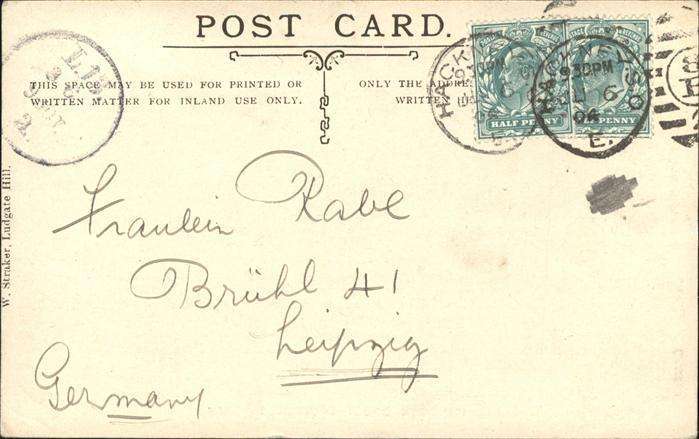 POST CARD.
THIS SPACE MAY BE USED FOR PRINTED OR
WRITTEN MATTER FOR INLAND USE ONLY.
ONLY THE
WRITTEN
HALF PENNY
PENNY
HACK
9.30PM
JL 6
04
E.
W. Straker, Ludgate Hill.
Fraulein Rabe
Brühl 41
Leipzig
Germany